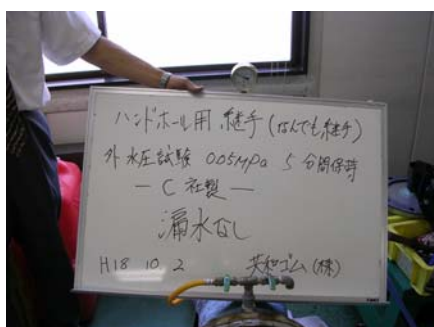 ハンドホール用継手(なんでも継手)
外水圧試験 0.05MPa 5分間保持
— C社製 —
漏水なし
H18 10 2 共和ゴム(株)